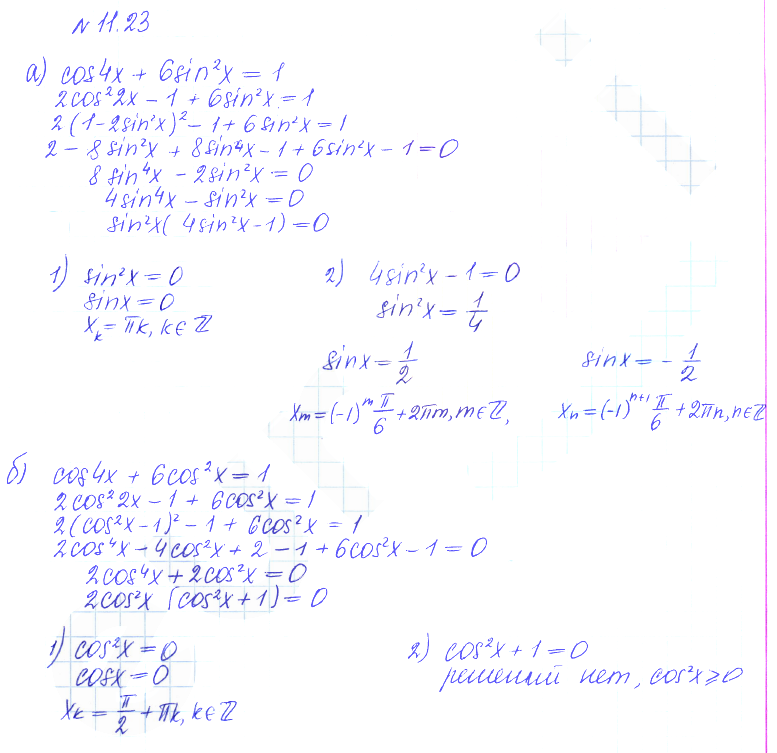 № 11.23
а) cos4x + 6sin²x = 1
2cos²2x − 1 + 6sin²x = 1
2(1−2sin²x)² − 1 + 6sin²x = 1
2 − 8sin²x + 8sin⁴x − 1 + 6sin²x − 1 = 0
8sin⁴x − 2sin²x = 0
4sin⁴x − sin²x = 0
sin²x(4sin²x−1) = 0
1) sin²x = 0
sinx = 0
xₖ = πk, k∈ℤ
2) 4sin²x − 1 = 0
sin²x = 1/4
sinx = 1/2
xₘ = (−1)ᵐ π/6 + 2πm, m∈ℤ,
sinx = − 1/2
xₙ = (−1)ⁿ⁺¹ π/6 + 2πn, n∈ℤ
б) cos4x + 6cos²x = 1
2cos²2x − 1 + 6cos²x = 1
2(cos²x − 1)² − 1 + 6cos²x = 1
2cos⁴x − 4cos²x + 2 − 1 + 6cos²x − 1 = 0
2cos⁴x + 2cos²x = 0
2cos²x (cos²x + 1) = 0
1) cos²x = 0
cosx = 0
xₖ = π/2 + πk, k∈ℤ
2) cos²x + 1 = 0
решений нет, cos²x ⩾ 0